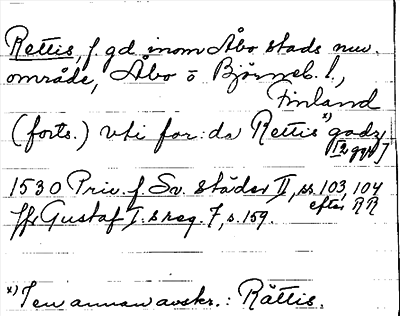 Rettis, f. gd. inom Åbo stads nuv.
område, Åbo o Björneb. l.,
Finland
(forts.) vti for:da Rettis x) godz
[2 ggr]
1530 Priv. f. Sv. städer II, ss. 103, 104
ffs Gustaf I:s reg. 7, s. 159. efter RR
x) I en annan avskr.: Rättis.